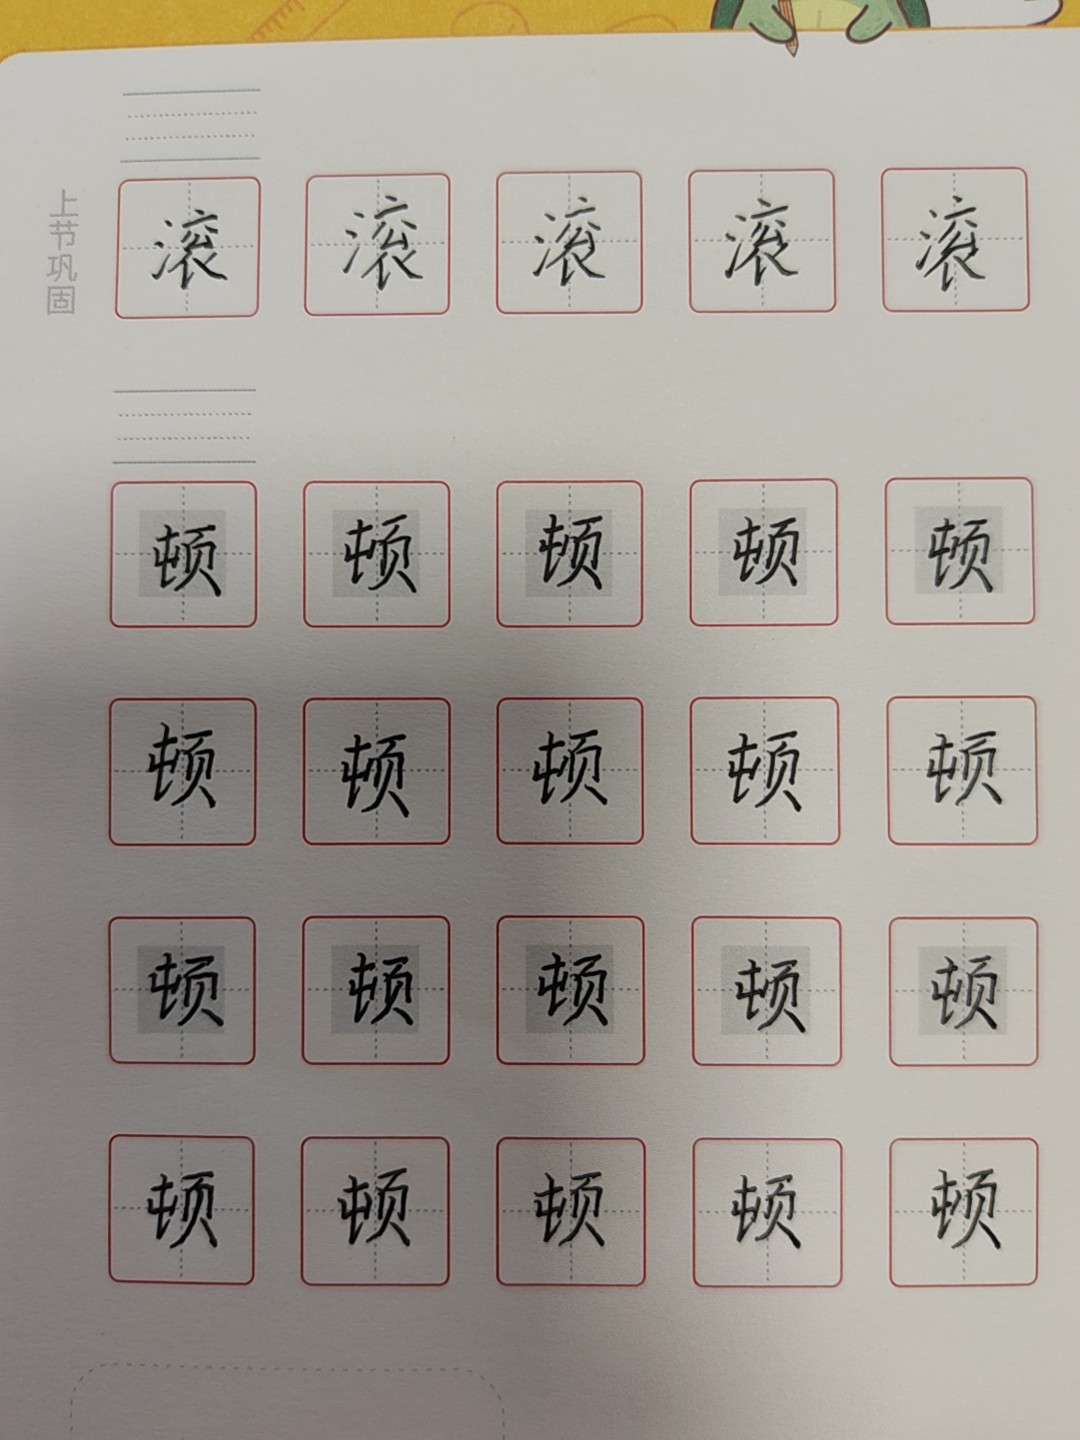 上节巩固
滚 滚 滚 滚 滚
顿 顿 顿 顿 顿
顿 顿 顿 顿 顿
顿 顿 顿 顿 顿
顿 顿 顿 顿 顿